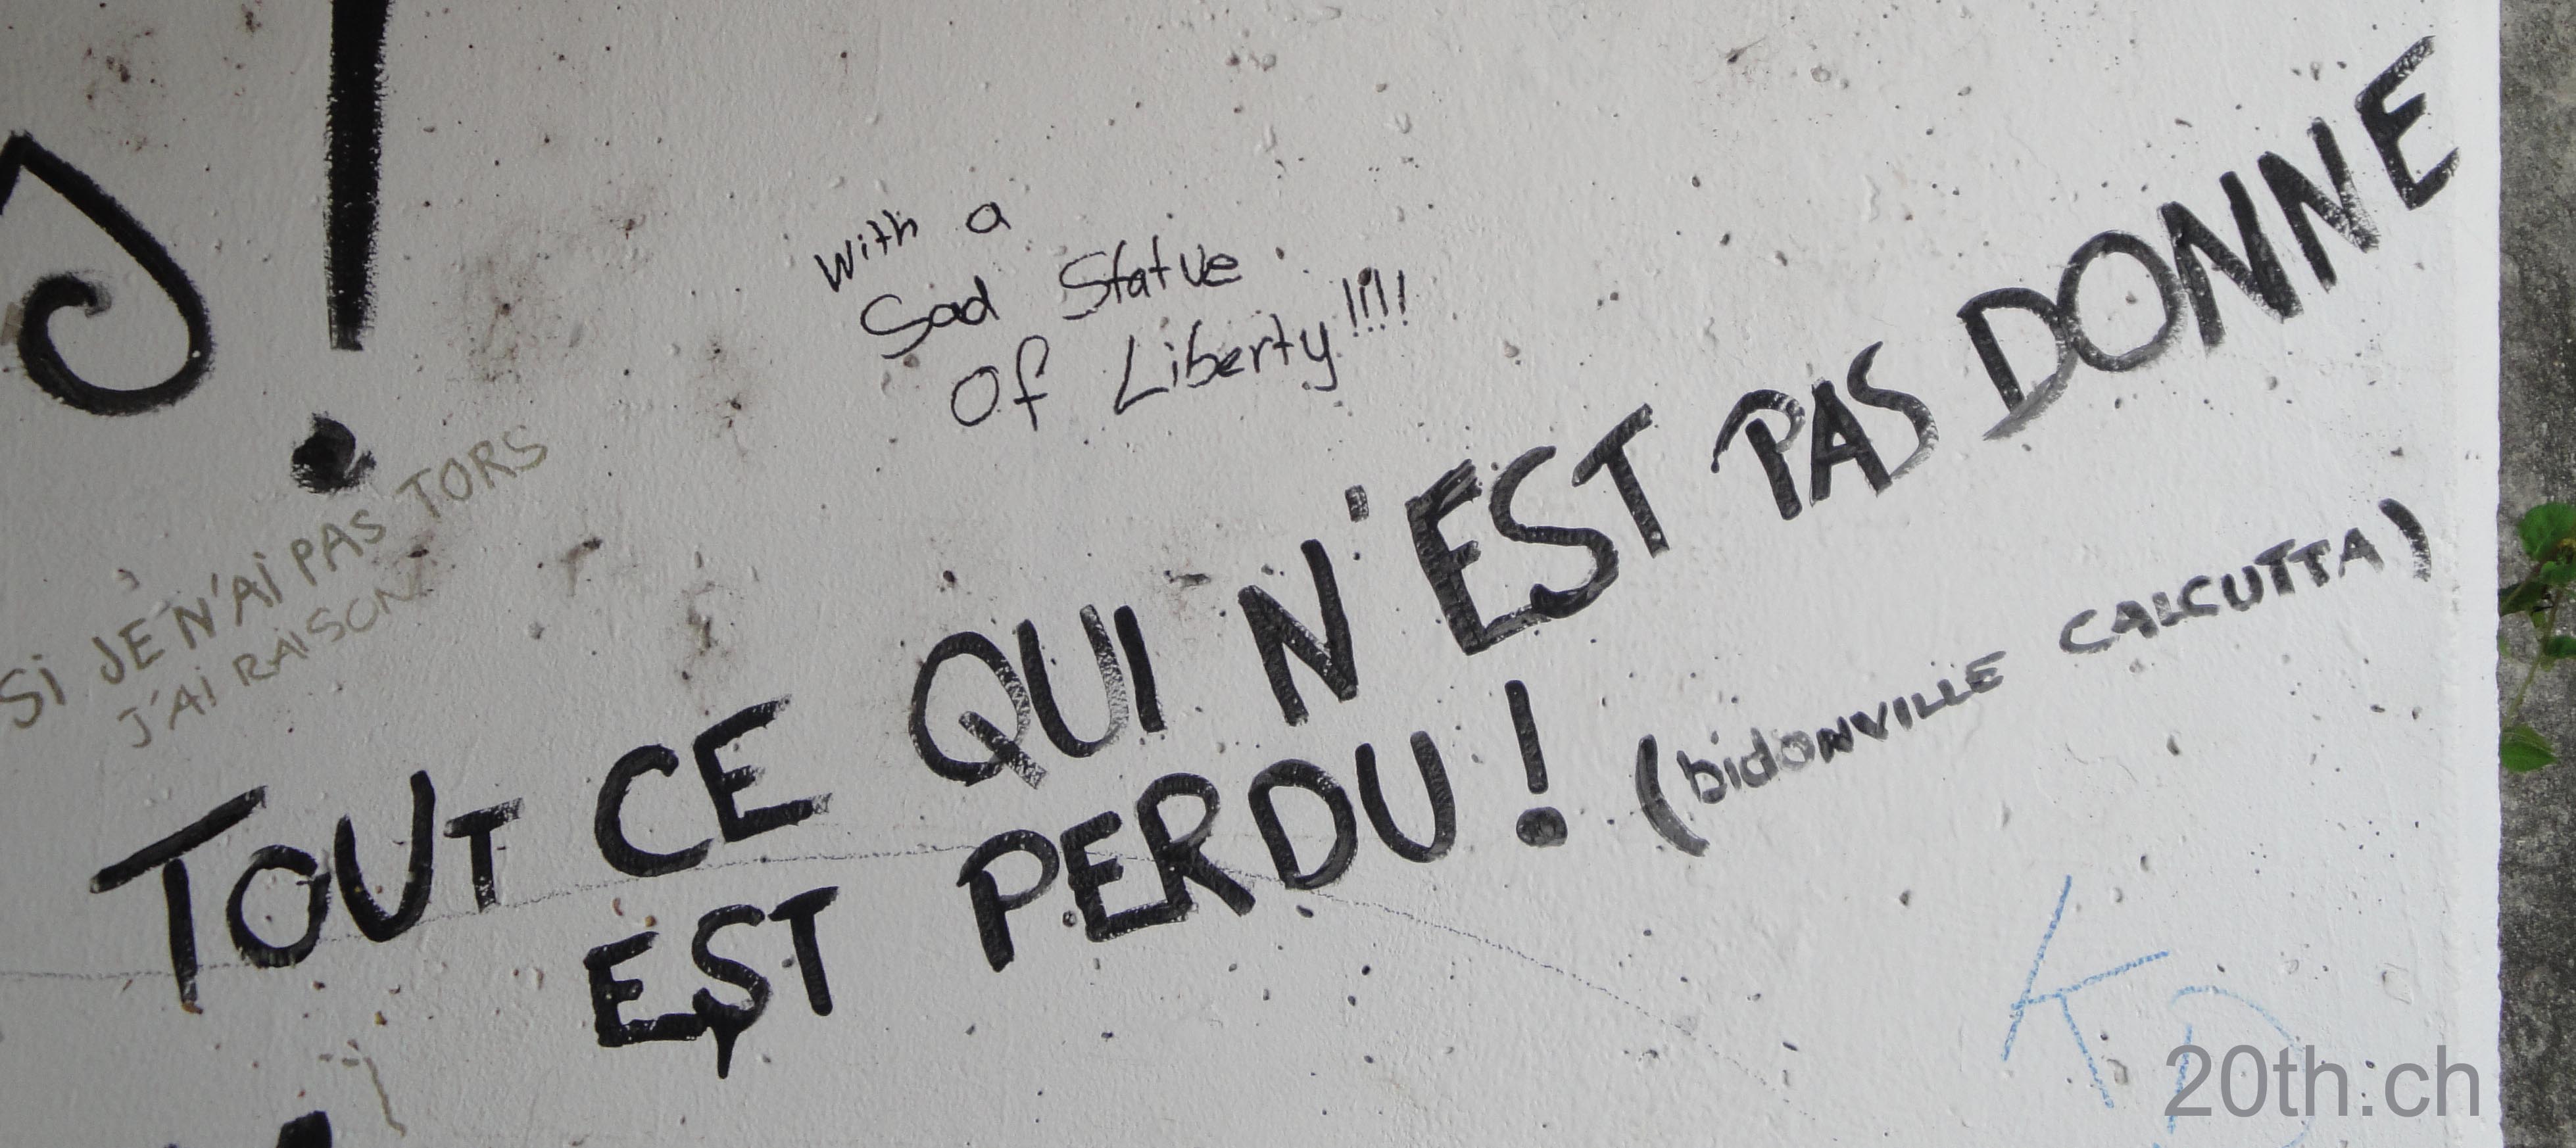 with a
Sad Statue
Of Liberty!!!!
SI JE N'AI PAS TORS
J'AI RAISON
TOUT CE QUI N'EST PAS DONNE
EST PERDU! (bidONVILLE CALCUTTA)
K
20th.ch